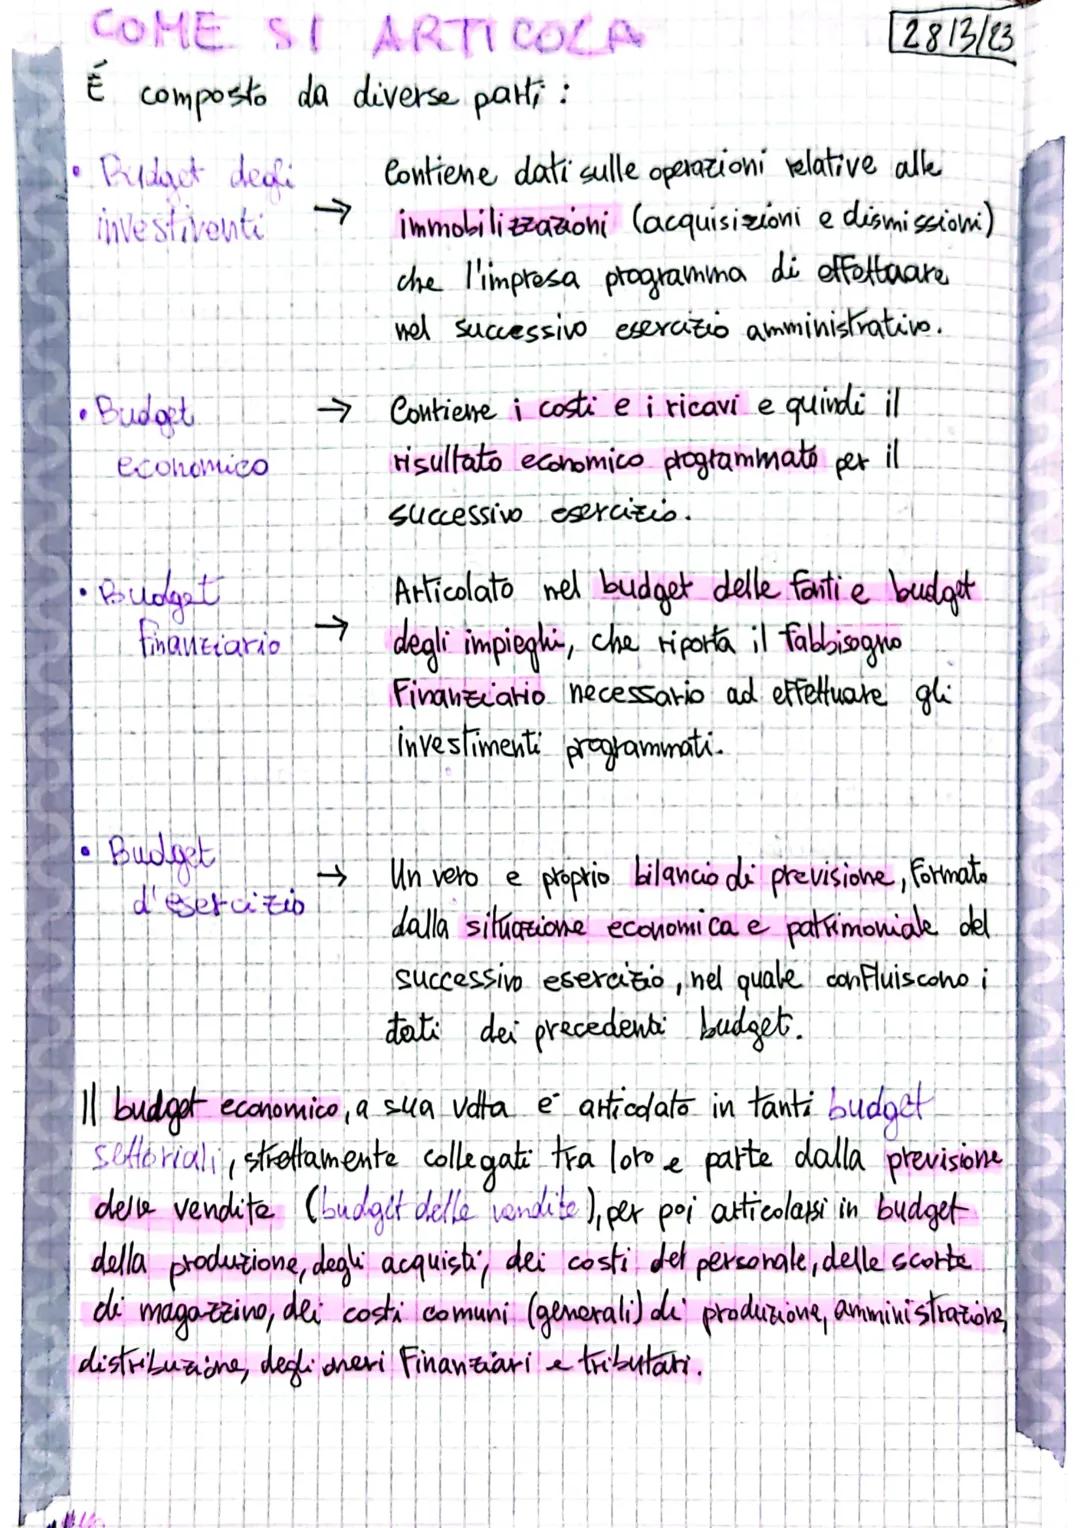 COME SI ARTICOLA
28/3/23
É composto da diverse parti :
• Budget degli → Contiene dati sulle operazioni relative alle
investiventi immobilizzazioni (acquisizioni e dismissioni)
che l'impresa programma di effettuare
nel successivo esercizio amministrativo.
• Budget → Contiene i costi e i ricavi e quindi il
economico risultato economico programmato per il
successivo esercizio.
• Budget Articolato nel budget delle fonti e budget
finanziario → degli impieghi, che riporta il fabbisogno
Finanziario necessario ad effettuare gli
investimenti programmati.
• Budget → Un vero e proprio bilancio di previsione, formato
d'esercizio dalla situazione economica e patrimoniale del
successivo esercizio, nel quale confluiscono i
dati dei precedenti budget.
Il budget economico, a sua volta è articolato in tanti budget
settoriali, strettamente collegati tra loro e parte dalla previsione
delle vendite (budget delle vendite), per poi articolarsi in budget
della produzione, degli acquisti, dei costi del personale, delle scorte
di magazzino, dei costi comuni (generali) di produzione, amministrazione,
distribuzione, degli oneri Finanziari e tributari.